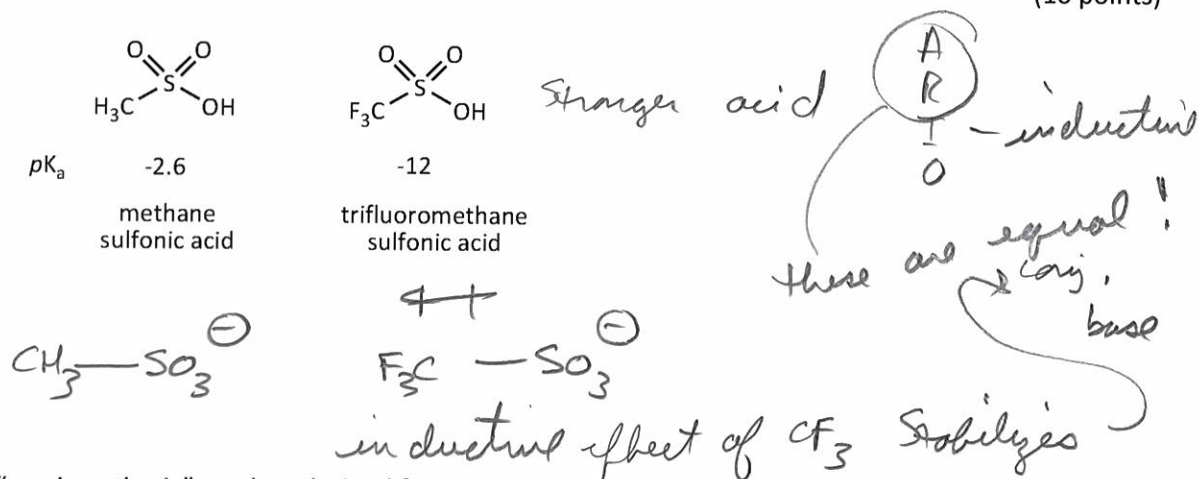 (10 points)
O O
S
H₃C OH
O O
S
F₃C OH
Stronger acid
A
R
I - inductive
O
pKa -2.6 -12
methane
sulfonic acid
trifluoromethane
sulfonic acid
these are equal!
conj.
base
CH₃—SO₃ ⊖
F₃C — SO₃ ⊖
inductive effect of CF₃ Stabilizes